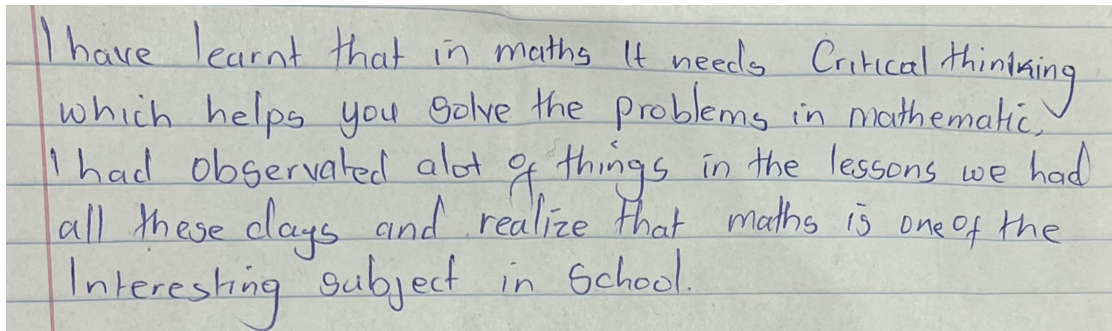 I have learnt that in maths It needs Critical thinking
which helps you Solve the problems in mathematic,
I had observated alot of things in the lessons we had
all these days and realize that maths is one of the
Interesting subject in School.